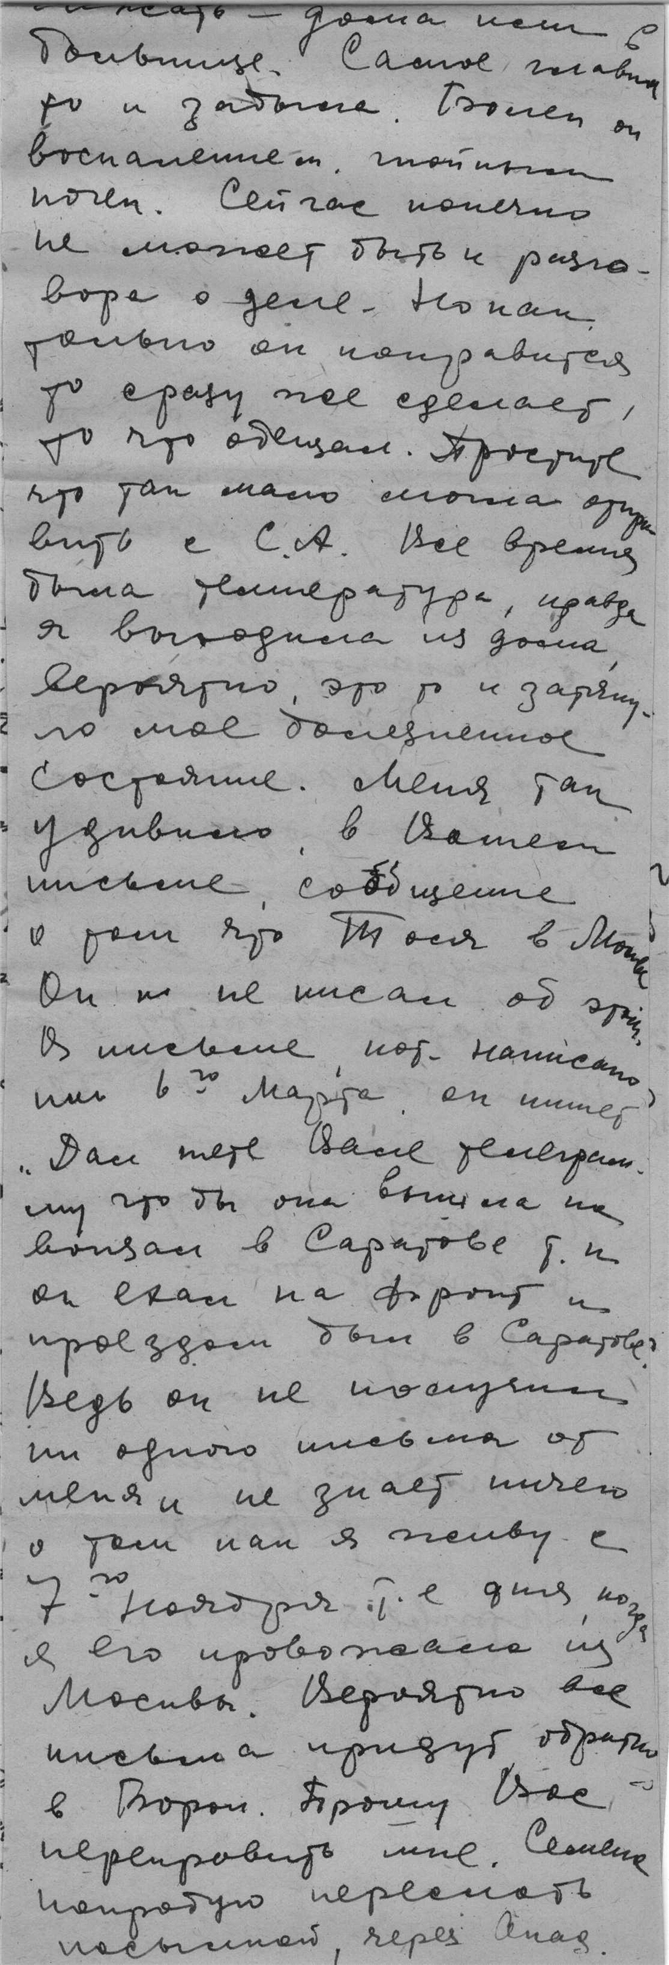 лежать – дома или в
больнице. Самое главное
то и забыла. Болен он
воспалением
почек. Сейчас конечно
не может быть и разго-
вора о деле. Но как
только он поправится
то сразу же сделает,
то что обещал. Простите
что так мало могла отпра
вить с С.А. Все время
была температура, правда
я выходила из дома,
вероятно, это то и затяну-
ло мое болезненное
состояние. Меня так
удивило, в Вашем
письме, сообщение
о том что Тося в Москве
Он мне не писал об этом.
В письме, кот. написано
им 6го Марта, он пишет
„Дал тете Вале телеграм-
му что бы она вышла на
вокзал в Саратове т.к
он ехал на фронт и
проездом был в Саратове"
Ведь он не получил
ни одного письма от
меня и не знает ничего
о том как я живу с
7го Ноября т.е дня, когда
я его провожала из
Москвы. Вероятно все
письма придут обратно
в Ворон. Прошу Вас
переправить мне. Семена
попробую переслать
посылкой, через Акад.